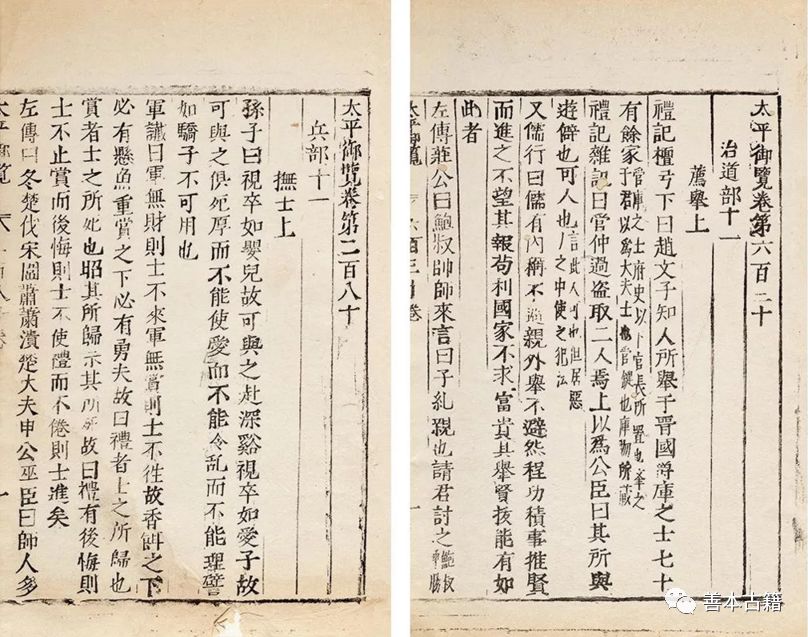 太平御覽卷第六百二十
治道部十一
薦舉上
禮記檀弓下曰趙文子知人所舉于晉國管庫之士七十
有餘家管庫之士府史以下官長所置也舉之
于君以爲大夫士也管鍵也庫物所藏
禮記雜記曰管仲過盗取二人焉上以爲公臣曰其所與
遊僻也可人也言此人可也但居惡
人之中使之犯法
又儒行曰儒有內稱不避親外舉不避怨程功積事推賢
而進之不望其報苟利國家不求富貴其舉賢援能有如
此者
左傳莊公曰鮑叔帥師來言曰子糺親也請君討之鮑叔
乗勝
太平御覽卷第二百八十
兵部十一
撫士上
孫子曰視卒如嬰兒故可與之赴深谿視卒如愛子故
可與之俱死厚而不能使愛而不能令亂而不能理譬
如驕子不可用也
軍讖曰軍無財則士不來軍無賞則士不徃故香餌之下
必有懸魚重賞之下必有勇夫故曰禮者士之所歸也
賞者士之所死也昭其所歸示其所死故曰禮有後悔則
士不止賞而後悔則士不使禮而不倦則士進矣
左傳曰冬楚伐宋圍蕭蕭潰楚大夫申公巫臣曰師人多
善本古籍